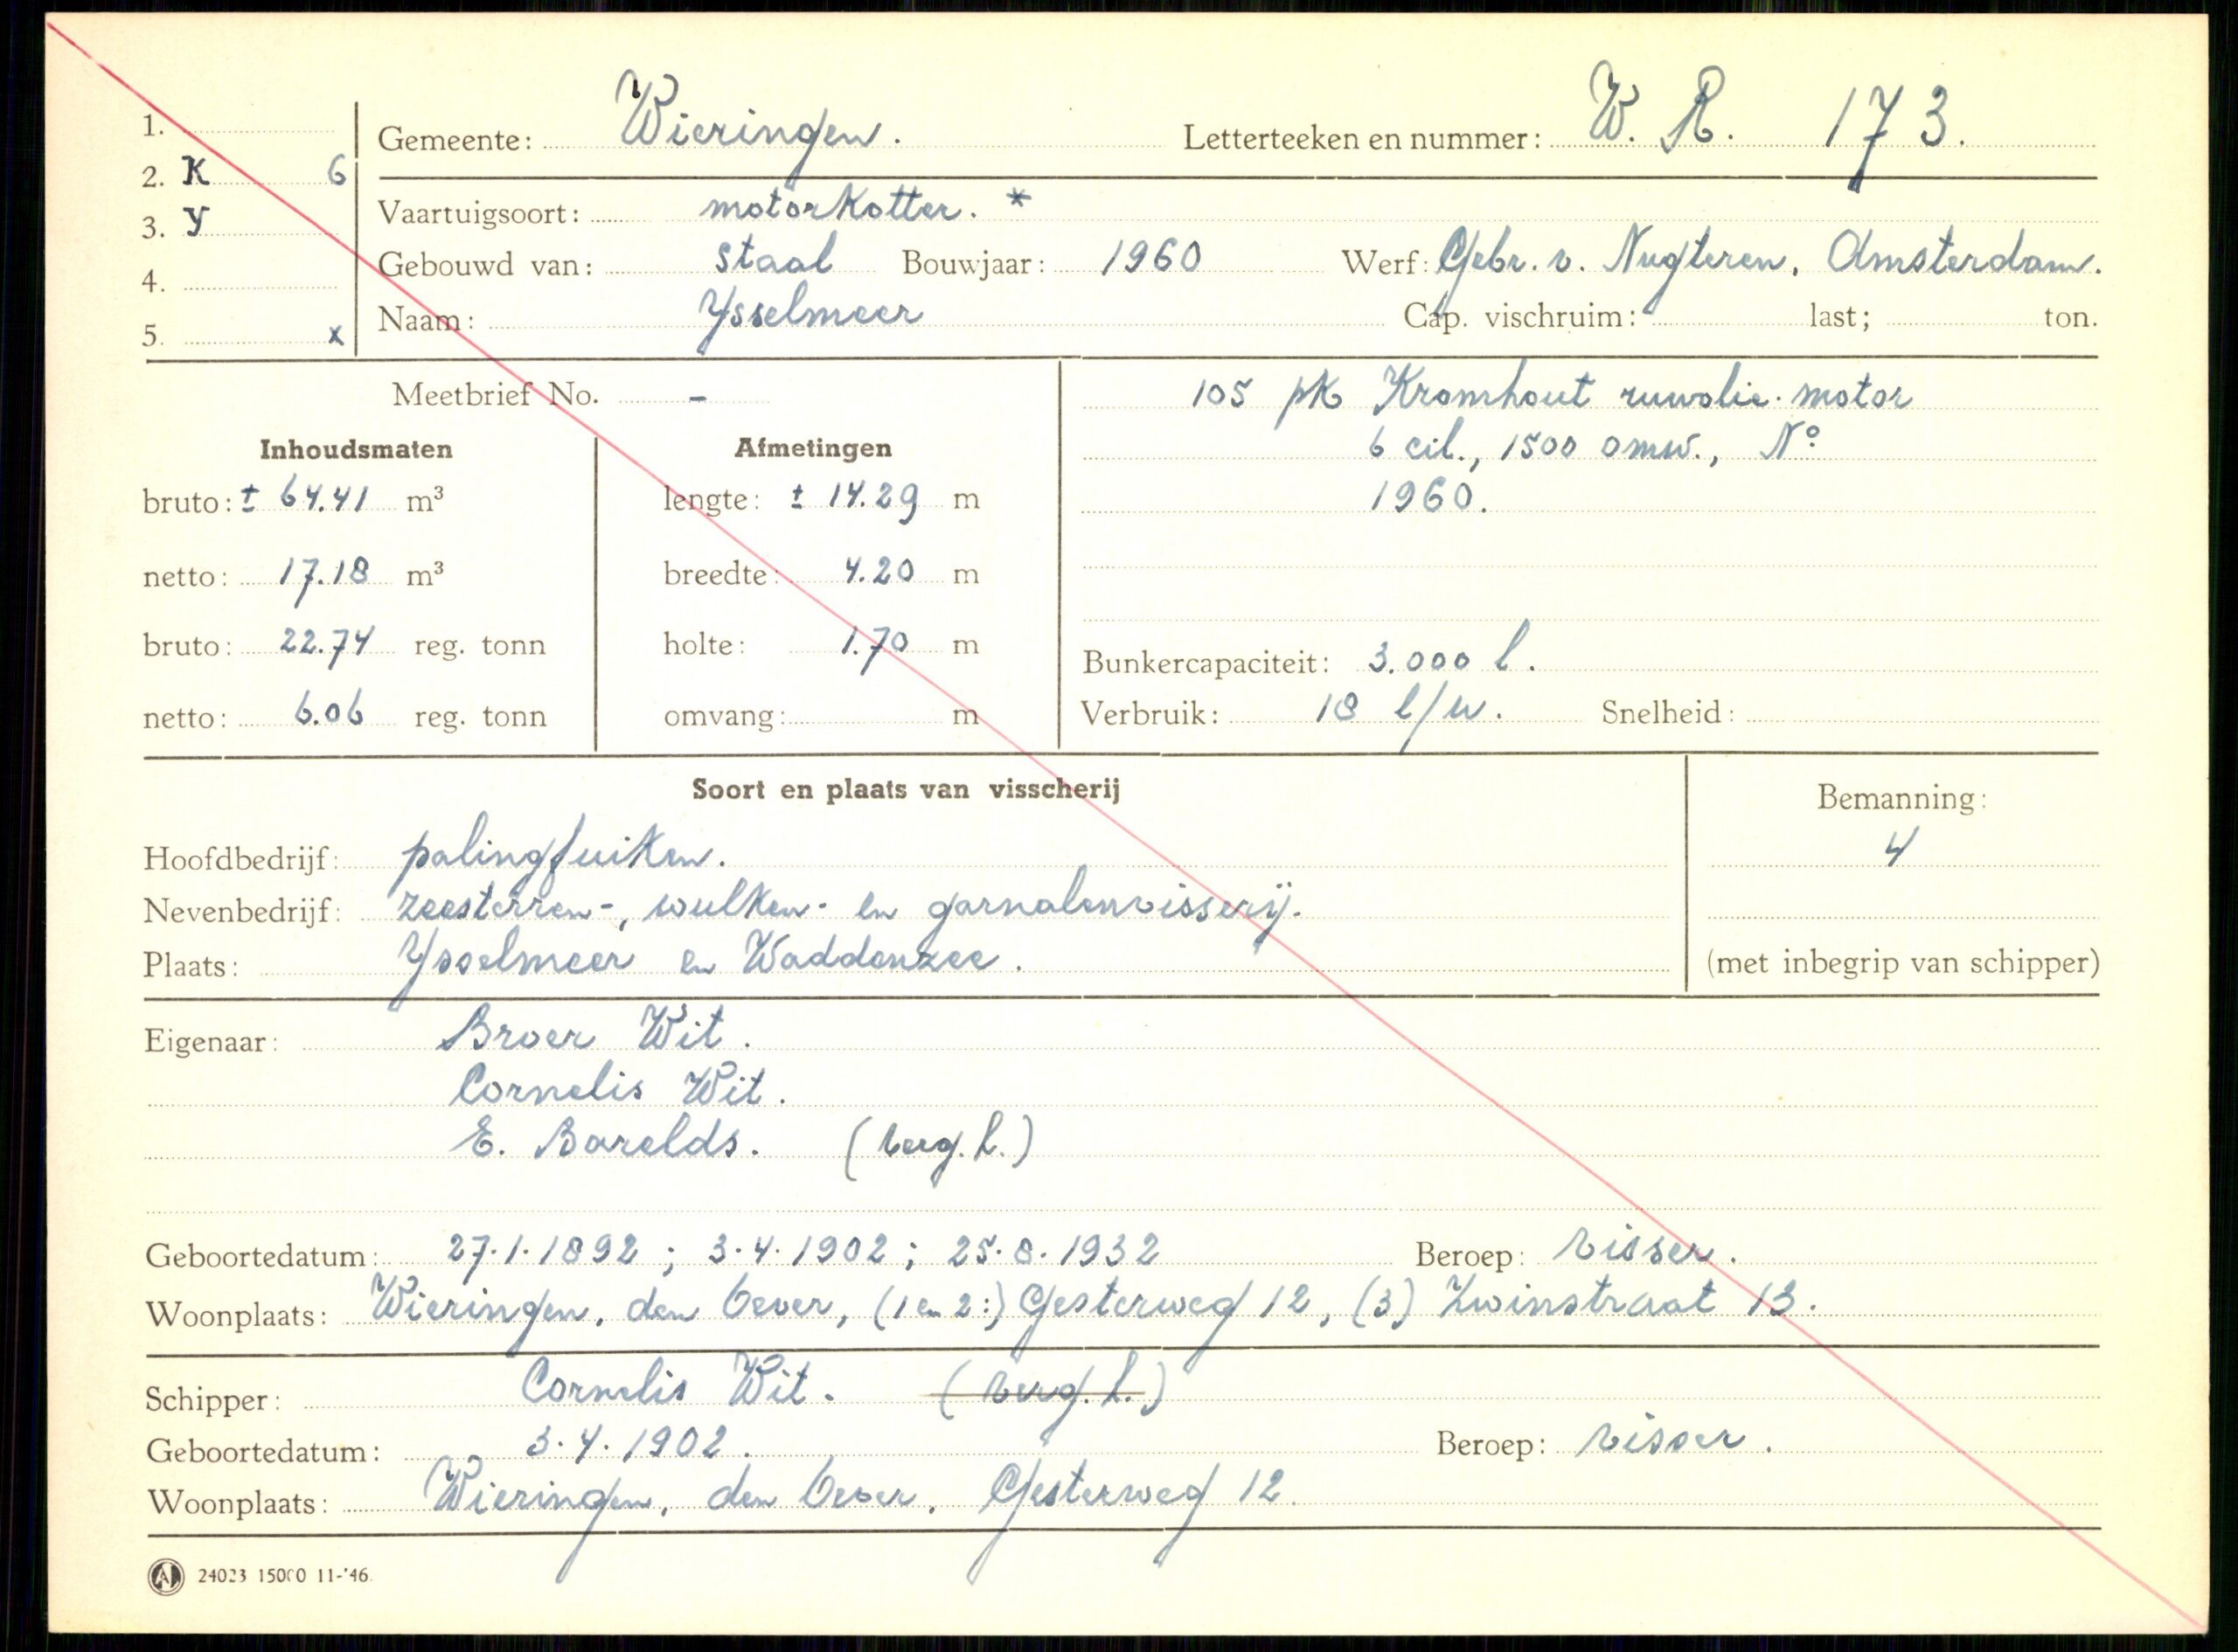 1.
Gemeente: Wieringen. Letterteeken en nummer: W. R. 173.
2. K 6
3. Y
Vaartuigsoort: motorkotter. *
4.
Gebouwd van: staal Bouwjaar: 1960 Werf: Gebr. v. Nugteren, Amsterdam.
5. x
Naam: Ysselmeer Cap. vischruim: last; ton.
Meetbrief No. -
105 pk Kromhout ruwolie-motor
Inhoudsmaten Afmetingen
6 cil., 1500 omw., No
bruto: ± 64.41 m³ lengte: ± 14.29 m
1960.
netto: 17.18 m³ breedte: 4.20 m
bruto: 22.74 reg. tonn holte: 1.70 m
Bunkercapaciteit: 3.000 l.
netto: 6.06 reg. tonn omvang: m
Verbruik: 18 l/u. Snelheid:
Soort en plaats van visscherij
Bemanning:
Hoofdbedrijf: palingfuiken.
4
Nevenbedrijf: zeesterren-, wulken- en garnalenvisserij.
Plaats: Ysselmeer en Waddenzee.
(met inbegrip van schipper)
Eigenaar: Broer Wit.
Cornelis Wit.
E. Barelds. (verg. h.)
Geboortedatum: 27.1.1892; 3.4.1902; 25.8.1932 Beroep: visser.
Woonplaats: Wieringen, den Oever, (1 en 2:) Gesterweg 12, (3) Zwinstraat 13.
Schipper: Cornelis Wit. (verg. h.)
Geboortedatum: 3.4.1902. Beroep: visser.
Woonplaats: Wieringen, den Oever, Gesterweg 12.
A 24023 15000 11-'46.